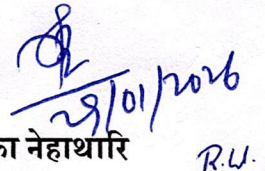 29/01/2026
का नेहाथारि
R.W.